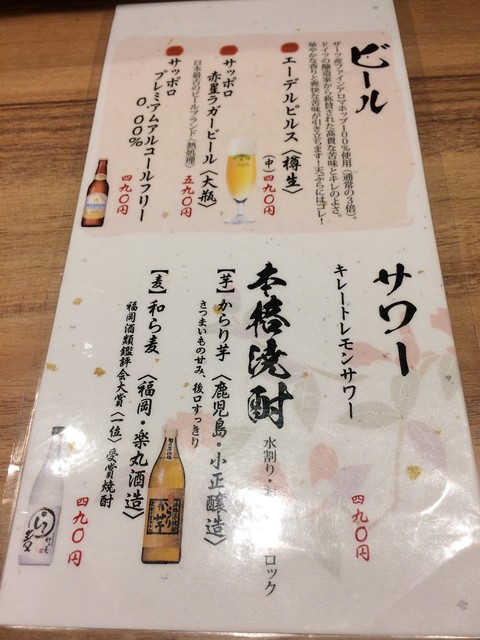 ビール
ザーツ産ファインアロマホップ100%使用（通常の3倍）。
ドイツの醸造家から称賛された高貴な苦味とキレのよさ。
華やかな香りと爽快な苦味が引き立ちます！天ぷらにはコレ！
エーデルピルス〈樽生〉
（中）四九〇円
サッポロ
赤星ラガービール〈大瓶〉
日本最古のビールブランド（熱処理）
五九〇円
サッポロ
プレミアムアルコールフリー
0.00%
四九〇円
サワー
キレートレモンサワー
四九〇円
本格焼酎
水割り・お ロック
【芋】からり芋〈鹿児島・小正醸造〉
さつまいもの甘み、後口すっきり
【麦】和ら麦〈福岡・楽丸酒造〉
福岡酒類鑑評会大賞〈一位〉受賞焼酎
四九〇円
からり芋